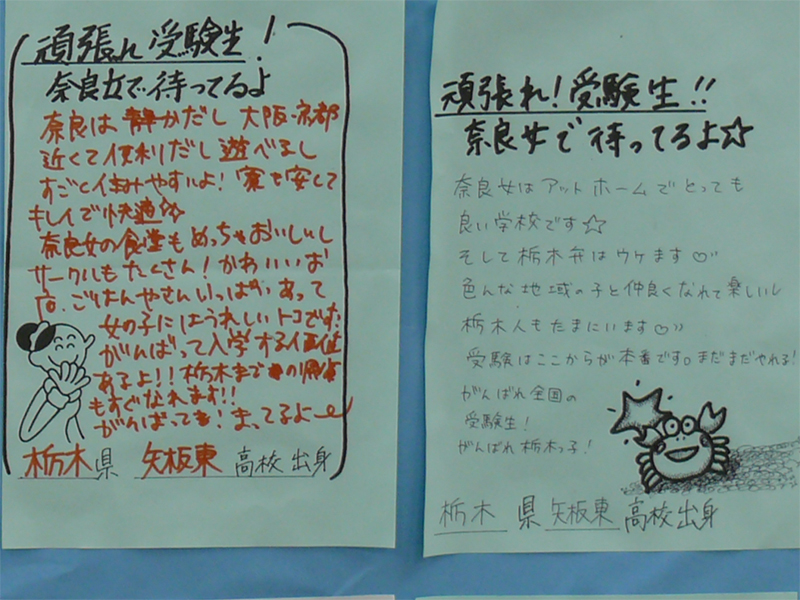 頑張れ受験生!
奈良女で待ってるよ
奈良は静かだし 大阪・京都
近くて便利だし遊べるし
すごく住みやすいよ! 寮も安くて
キレイで快適☆
奈良女の食堂もめっちゃおいしいし
サークルもたくさん!かわいいお
店、ごはんやさんいっぱいあって
女の子にはうれしいトコです。
がんばって入学する価値
あるよ!!栃木まで
もすぐなれます!!
がんばってき!まってるよー
栃木県 矢板東 高校出身
頑張れ!受験生!!
奈良女で待ってるよ☆
奈良女はアットホームでとっても
良い学校です☆
そして栃木弁はウケます♡
色んな地域の子と仲良くなれて楽しいし
栃木人もたまにいます♡
受験はここからが本番です。まだまだやれる!
がんばれ全国の
受験生!
がんばれ栃木っ子!
栃木 県 矢板東 高校出身